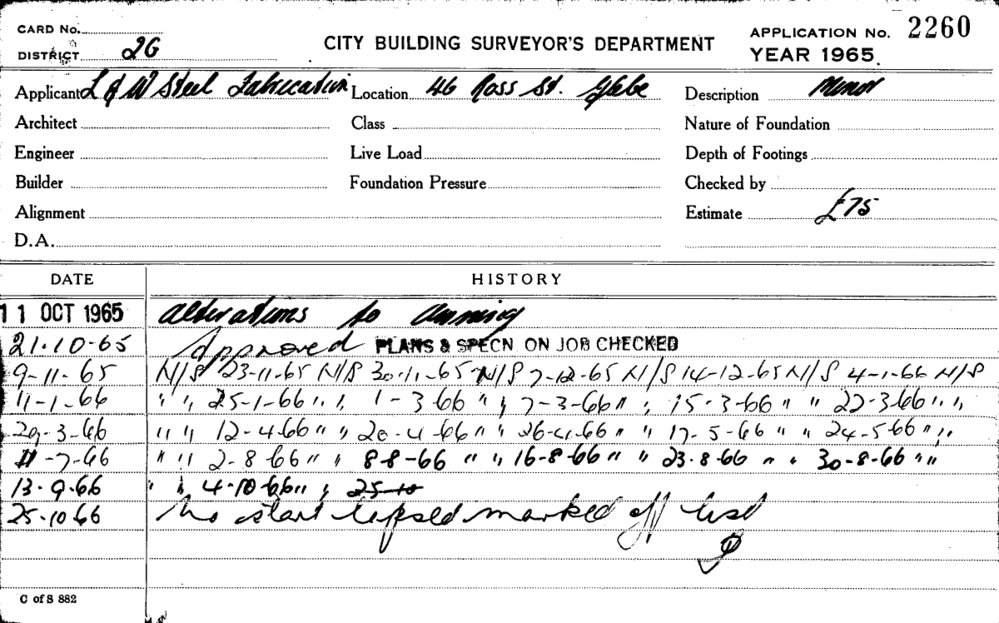 CARD No.
DISTRICT 2G
CITY BUILDING SURVEYOR'S DEPARTMENT
APPLICATION No. 2260
YEAR 1965.
Applicant L & W Steel Fabrication Location 46 Ross St. Glebe Description Minor
Architect Class Nature of Foundation
Engineer Live Load Depth of Footings
Builder Foundation Pressure Checked by
Alignment Estimate £75
D.A.
DATE HISTORY
11 OCT 1965 Alterations to awning
21-10-65 Approved PLANS & SPECN ON JOB CHECKED
9-11-65 N/S 23-11-65 N/S 30-11-65 N/S 7-12-65 N/S 14-12-65 N/S 4-1-66 N/S
11-1-66 " " 25-1-66 " " 1-3-66 " " 7-3-66 " " 15-3-66 " " 22-3-66 " "
29-3-66 " " 12-4-66 " " 20-4-66 " " 26-4-66 " " 17-5-66 " " 24-5-66 " "
-7-66 " " 2-8-66 " " 8-8-66 " " 16-8-66 " " 23-8-66 " " 30-8-66 " "
13-9-66 " " 4-10-66 " " 25-10
25-10-66 No start lapsed marked off list
C of S 882